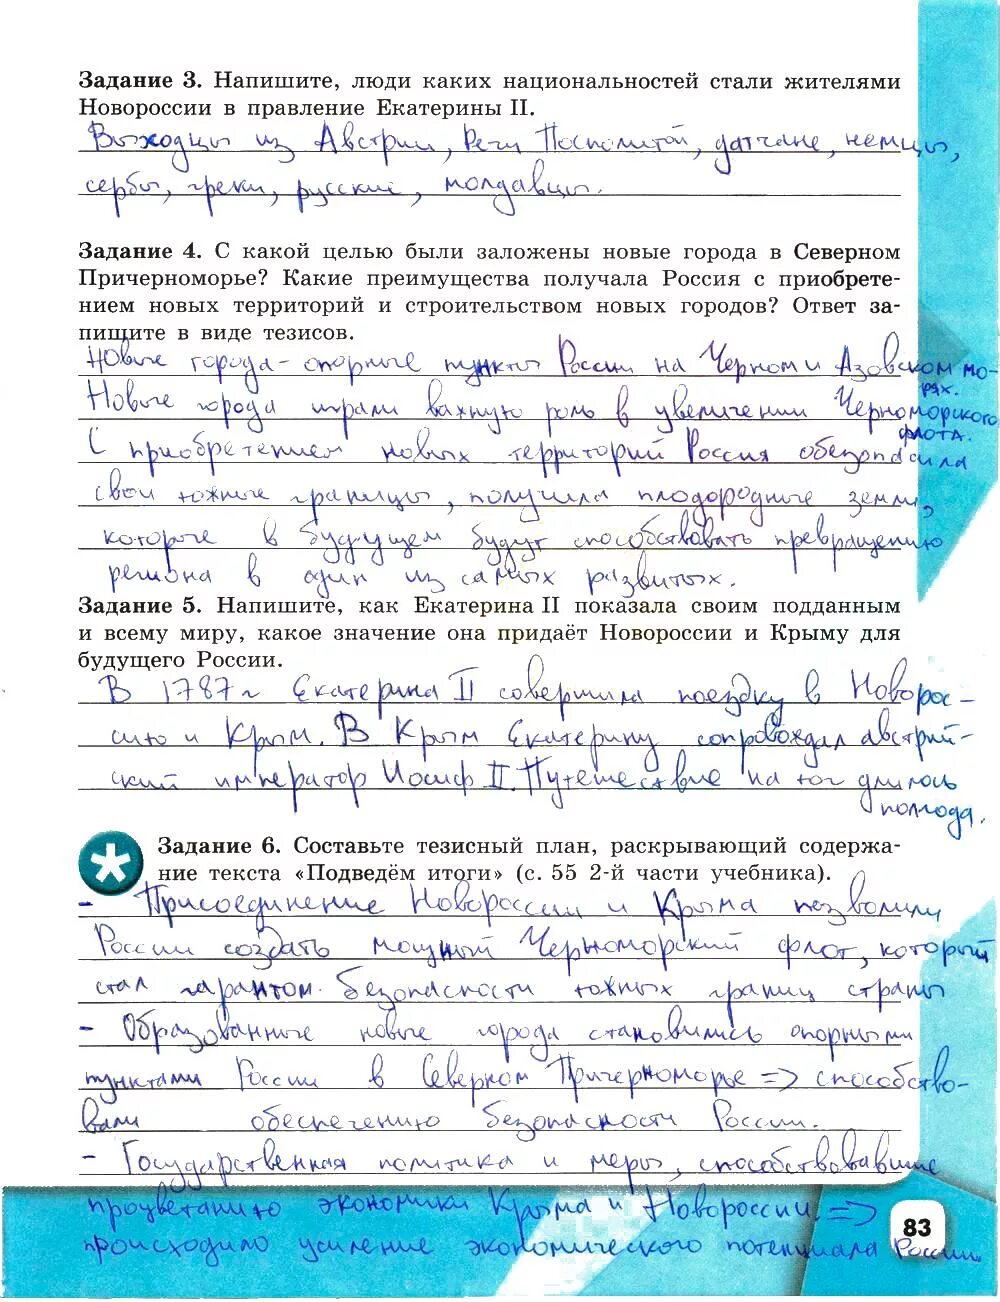 Задание 3. Напишите, люди каких национальностей стали жителями
Новороссии в правление Екатерины II.
Выходцы из Австрии, Речи Посполитой, датчане, немцы,
сербы, греки, русские, молдавцы.
Задание 4. С какой целью были заложены новые города в Северном
Причерноморье? Какие преимущества получала Россия с приобрете-
нием новых территорий и строительством новых городов? Ответ за-
пишите в виде тезисов.
Новые города - опорные пункты России на Черном и Азовском мо-
рях.
Новые города играли важную роль в увеличении Черноморского
флота.
С приобретением новых территорий Россия обезопасила
свои южные границы, получила плодородные земли,
которые в будущем будут способствовать превращению
региона в один из самых развитых.
Задание 5. Напишите, как Екатерина II показала своим подданным
и всему миру, какое значение она придаёт Новороссии и Крыму для
будущего России.
В 1787 г Екатерина II совершила поездку в Новорос-
сию и Крым. В Крым Екатерину сопровождал австрий-
ский император Иосиф II. Путешествие на юг длилось
полгода.
Задание 6. Составьте тезисный план, раскрывающий содержа-
ние текста «Подведём итоги» (с. 55 2-й части учебника).
- Присоединение Новороссии и Крыма позволили
России создать мощный Черноморский флот, который
стал гарантом безопасности южных границ страны
- Образованные новые города становились опорными
пунктами России в Северном Причерноморье => способство-
вали обеспечению безопасности России.
- Государственная политика и меры, способствовавшие
процветанию экономики Крыма и Новороссии. =>
происходило усиление экономического потенциала России.
83